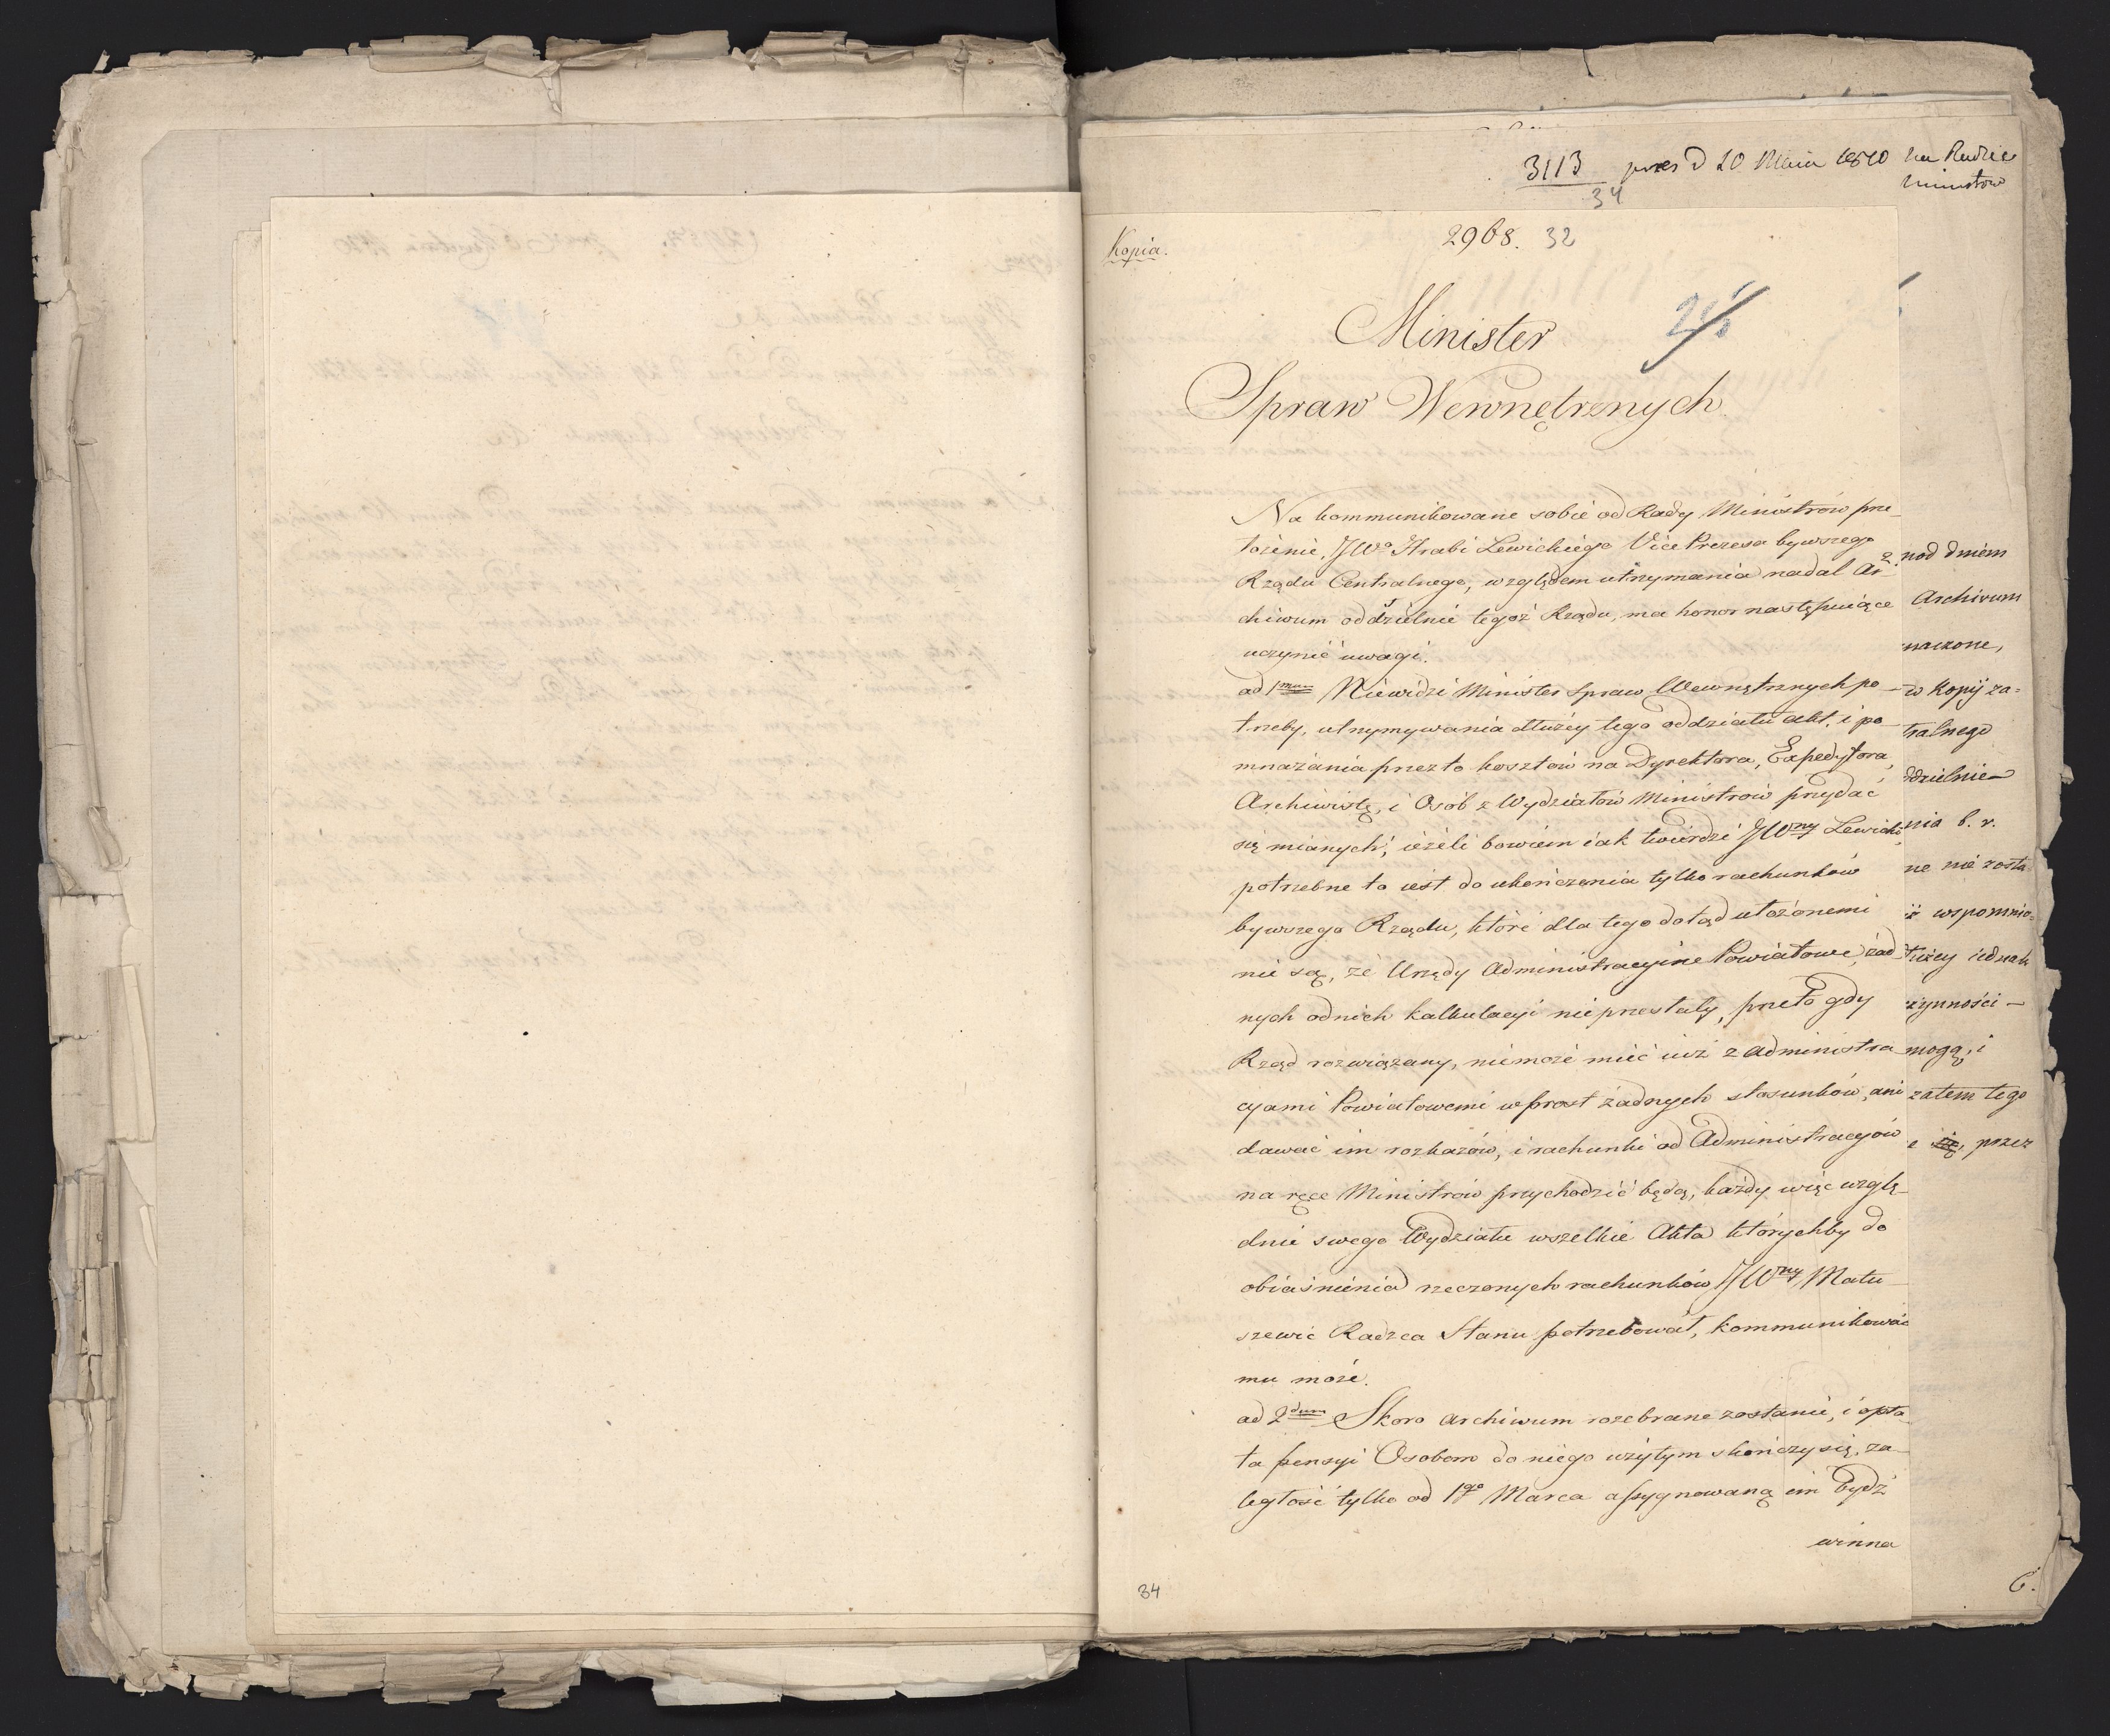 3113 pres d 20 Maia 1810 na Radzie
34 Ministrow
Kopia.
2968. 32
Minister
Spraw Wewnętrznych.
Na kommunikowane sobie od Rady Ministrów prze-
łożenie, JWo Hrabi Lewickiego Vice Prezesa bywszego
Rządu Centralnego, względem utrzymania nadal Ar-
chiwum oddzielnie tegoż Rządu, ma honor następuiące
uczynić uwagi.
ad 1mum Niewidzi Minister Spraw Wewnętrznych po-
trzeby, utrzymywania dłużey tego oddziału akt. i po-
mnażania przezto kosztów na Dyrektora, Expedytora,
Archiwistę, i Osób z Wydziałów Ministrów przydać
się mianych; ieżeli bowiem iak twierdzi JWny Lewicki,
potrzebne to iest do ukończenia tylko rachunków
bywszego Rządu, które dla tego dotąd ułożonemi
nie są, że Urzędy Administracyine Powiatowe, żad-
nych odnich kalkulacyi nieprzestały, przeto gdy
Rząd rozwiązany, niemoże mieć iuż z Administra-
cyami Powiatowemi wprost żadnych stosunków, ani
dawać im rozkazów, i rachunki od Administracyów
na ręce Ministrów przychodzić będą, każdy więc wzglę-
dnie swego Wydziału wszelkie Akta którychby do
obiaśnienia rzeczonych rachunków JWny Matu-
szewic Radzca Stanu potrzebował, kommunikować
mu może.
ad 2dum Skoro archiwum rozebrane zostanie, i opła-
ta pensyi Osobom do niego użytym skończy się, za-
ległość tylko od 1go Marca assygnowaną im bydź
winna
34
pod dniem
Archivum
naczone,
w Kopij za=
tralnego
ddzielnie
nia b. r.
ne nie zosta
iż wspomnio=
tużey iednak
zynności
mogą, i
zatem tego
e się, przez
6.